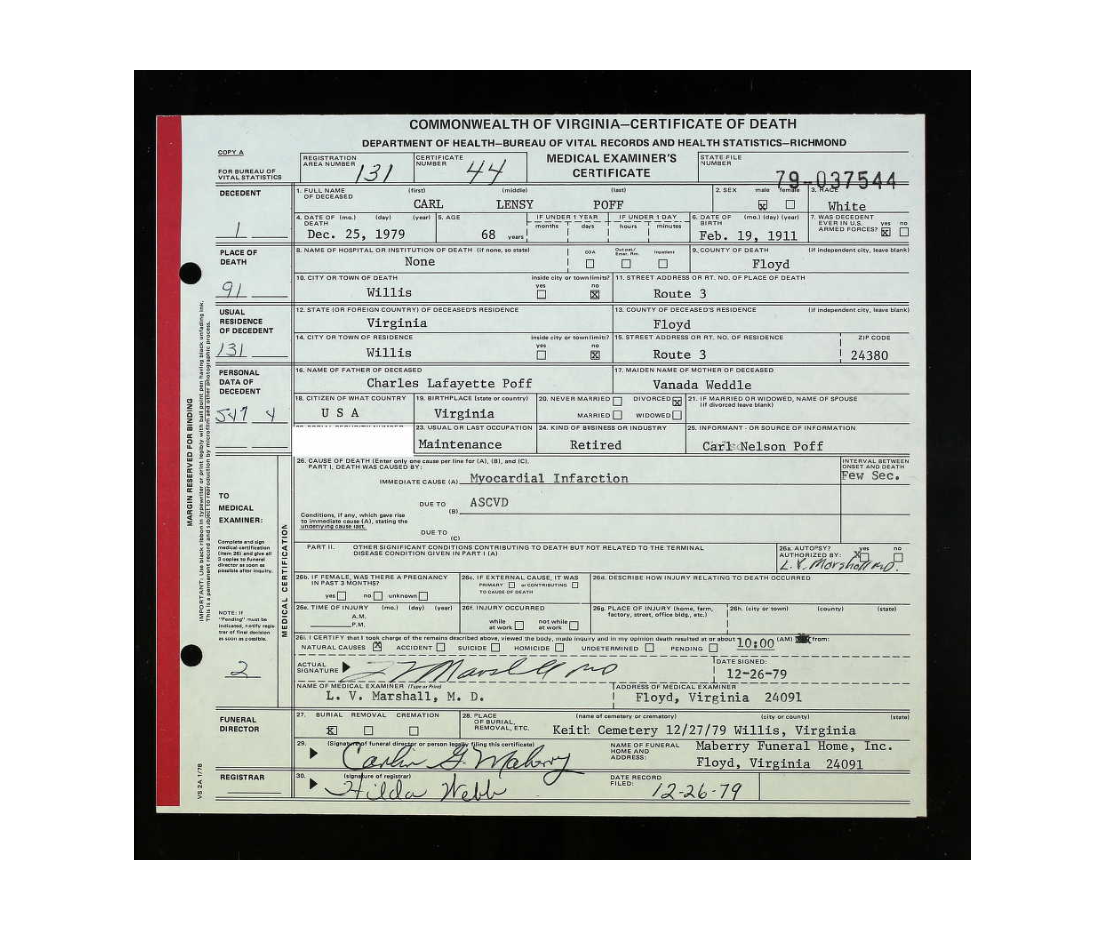 COMMONWEALTH OF VIRGINIA—CERTIFICATE OF DEATH
DEPARTMENT OF HEALTH—BUREAU OF VITAL RECORDS AND HEALTH STATISTICS—RICHMOND
COPY A
FOR BUREAU OF VITAL STATISTICS
REGISTRATION AREA NUMBER 131
CERTIFICATE NUMBER 44
MEDICAL EXAMINER'S CERTIFICATE
STATE FILE NUMBER 79-037544
DECEDENT
1
1. FULL NAME OF DECEASED (first) (middle) (last)
CARL LENSY POFF
2. SEX male female
☒ ☐
3. RACE
White
4. DATE OF DEATH (mo.) (day) (year)
Dec. 25, 1979
5. AGE
68 years
IF UNDER 1 YEAR months days
IF UNDER 1 DAY hours minutes
6. DATE OF BIRTH (mo.) (day) (year)
Feb. 19, 1911
7. WAS DECEDENT EVER IN U.S. ARMED FORCES? yes ☒ no ☐
PLACE OF DEATH
91
8. NAME OF HOSPITAL OR INSTITUTION OF DEATH (if none, so state)
None
DOA ☐ Out-pat/Emer. Rm. ☐ Inpatient ☐
9. COUNTY OF DEATH (if independent city, leave blank)
Floyd
10. CITY OR TOWN OF DEATH inside city or town limits? yes ☐ no ☒
Willis
11. STREET ADDRESS OR RT. NO. OF PLACE OF DEATH
Route 3
USUAL RESIDENCE OF DECEDENT
131
12. STATE (OR FOREIGN COUNTRY) OF DECEASED'S RESIDENCE
Virginia
13. COUNTY OF DECEASED'S RESIDENCE (if independent city, leave blank)
Floyd
14. CITY OR TOWN OF RESIDENCE inside city or town limits? yes ☐ no ☒
Willis
15. STREET ADDRESS OR RT. NO. OF RESIDENCE
Route 3
ZIP CODE
24380
PERSONAL DATA OF DECEDENT
547 4
16. NAME OF FATHER OF DECEASED
Charles Lafayette Poff
17. MAIDEN NAME OF MOTHER OF DECEASED
Vanada Weddle
18. CITIZEN OF WHAT COUNTRY
U S A
19. BIRTHPLACE (state or country)
Virginia
20. NEVER MARRIED ☐ DIVORCED ☒
MARRIED ☐ WIDOWED ☐
21. IF MARRIED OR WIDOWED, NAME OF SPOUSE (if divorced leave blank)
23. USUAL OR LAST OCCUPATION
Maintenance
24. KIND OF BUSINESS OR INDUSTRY
Retired
25. INFORMANT - OR SOURCE OF INFORMATION
Carl Nelson Poff
MARGIN RESERVED FOR BINDING
TO MEDICAL EXAMINER:
Complete and sign medical certification (item 26) and give all 3 copies to funeral director as soon as possible after inquiry.
NOTE: IF "Pending" must be indicated, notify registrar of final decision as soon as possible.
2
MEDICAL CERTIFICATION
26. CAUSE OF DEATH (Enter only one cause per line for (A), (B), and (C).
PART I. DEATH WAS CAUSED BY:
IMMEDIATE CAUSE (A) Myocardial Infarction
INTERVAL BETWEEN ONSET AND DEATH
Few Sec.
DUE TO (B) ASCVD
Conditions, if any, which gave rise to immediate cause (A), stating the underlying cause last.
DUE TO (C)
PART II. OTHER SIGNIFICANT CONDITIONS CONTRIBUTING TO DEATH BUT NOT RELATED TO THE TERMINAL DISEASE CONDITION GIVEN IN PART I (A)
26a. AUTOPSY? yes no
AUTHORIZED BY:
L.V. Marshall M.D.
26b. IF FEMALE, WAS THERE A PREGNANCY IN PAST 3 MONTHS?
yes ☐ no ☐ unknown ☐
26c. IF EXTERNAL CAUSE, IT WAS
PRIMARY ☐ or CONTRIBUTING ☐
TO CAUSE OF DEATH
26d. DESCRIBE HOW INJURY RELATING TO DEATH OCCURRED
26e. TIME OF INJURY (mo.) (day) (year)
A.M.
P.M.
26f. INJURY OCCURRED
while at work ☐ not while at work ☐
26g. PLACE OF INJURY (home, farm, factory, street, office bldg., etc.)
26h. (city or town) (county) (state)
26i. I CERTIFY that I took charge of the remains described above, viewed the body, made inquiry and in my opinion death resulted at or about 10:00 (AM) from:
NATURAL CAUSES ☒ ACCIDENT ☐ SUICIDE ☐ HOMICIDE ☐ UNDETERMINED ☐ PENDING ☐
ACTUAL SIGNATURE L V Marshall MD
DATE SIGNED:
12-26-79
NAME OF MEDICAL EXAMINER (Type or Print)
L. V. Marshall, M. D.
ADDRESS OF MEDICAL EXAMINER
Floyd, Virginia 24091
FUNERAL DIRECTOR
27. BURIAL REMOVAL CREMATION
☒ ☐ ☐
28. PLACE OF BURIAL, REMOVAL, ETC. (name of cemetery or crematory) (city or county) (state)
Keith Cemetery 12/27/79 Willis, Virginia
29. (Signature of funeral director or person legally filing this certificate)
Carlin G. Maberry
NAME OF FUNERAL HOME AND ADDRESS:
Maberry Funeral Home, Inc.
Floyd, Virginia 24091
REGISTRAR
30. (signature of registrar)
Hilda Webb
DATE RECORD FILED:
12-26-79
VS 2A 1/78